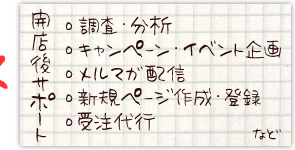 開店後サポート
○調査・分析
○キャンペーン・イベント企画
○メルマガ配信
○新規ページ作成・登録
○受注代行
など